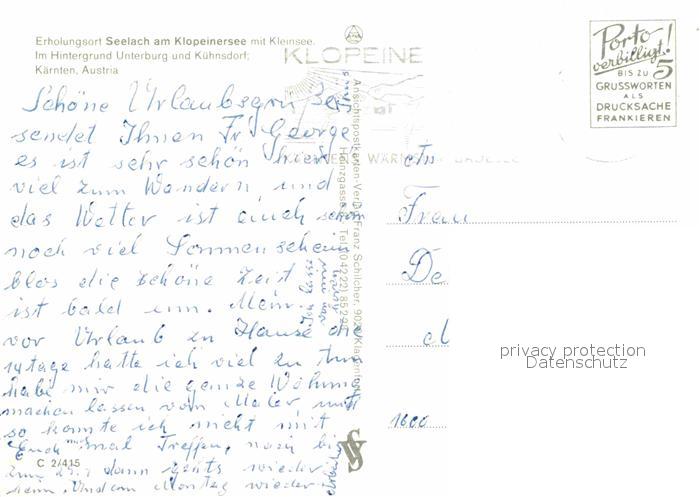 Erholungsort Seelach am Klopeinersee mit Kleinsee.
Im Hintergrund Unterburg und Kühnsdorf;
Kärnten, Austria
KLOPEINE
Porto
verbilligt!
BIS ZU 5
GRUSSWORTEN
ALS
DRUCKSACHE
FRANKIEREN
Schöne Urlaubsgrüße
sendet Ihnen Fr. George,
es ist sehr schön hier
viel zum Wandern und
das Wetter ist auch schön
noch viel Sonnenschein
blos die schöne Zeit
ist bald um. Mein
vor Urlaub zu Hause die
14 tage hatte ich viel zu tun
habe mir die ganze Wohnung
machen lassen vom Maler und
so konnte ich nicht mit
Euch mal Treffen, noch bis
zum dann gehts wieder
heim. Und am Montag wieder
Ansichtspostkarten-Verlag Franz Schilcher, 9020 Klagenfurt
Tel. (04222) 85294
An
Frau
De
1600
C 2/415
privacy protection
Datenschutz